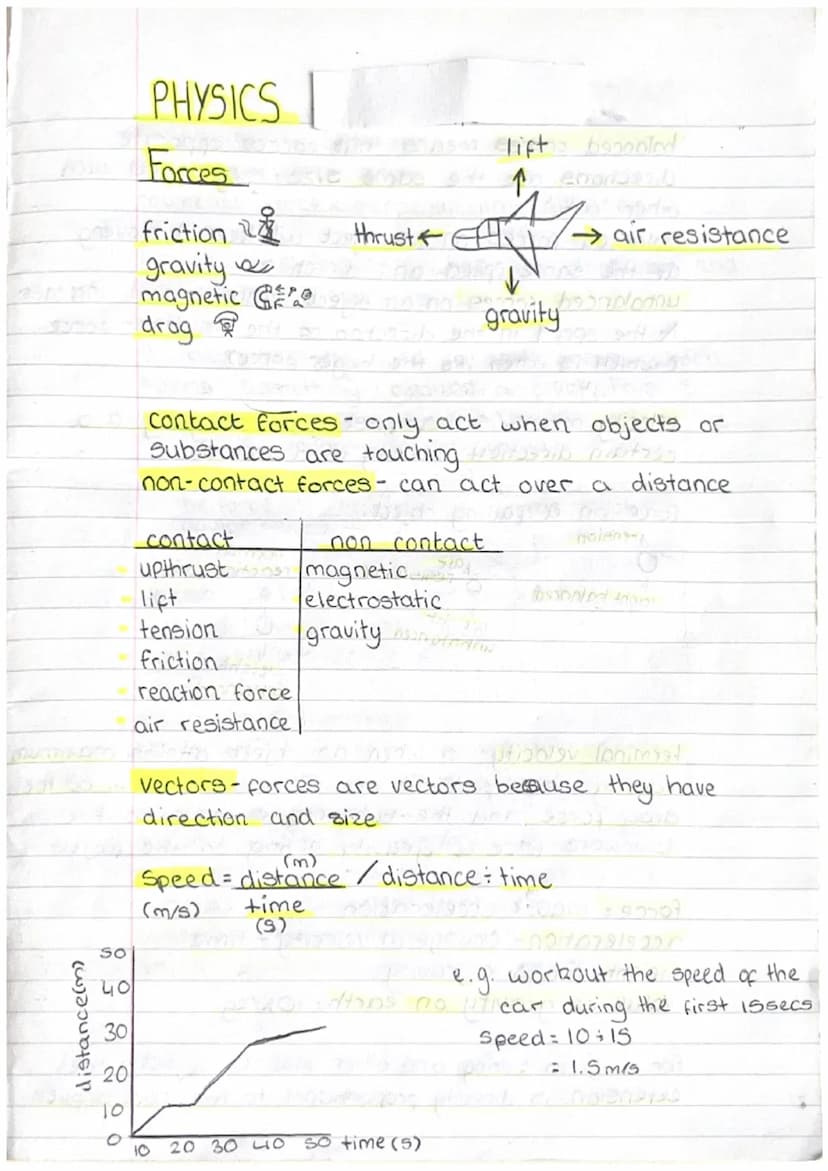 PHYSICS
Forces
friction
gravity
magnetic
drag
lift
thrust
air resistance
gravity
contact forces - only act when objects or
substances are touching
non-contact forces - can act over a distance
contact non contact
upthrust magnetic
lift electrostatic
tension gravity
friction
reaction force
air resistance
vectors - forces are vectors because they have
direction and size
(m)
speed = distance / distance ÷ time
(m/s) time
(s)
distance(m)
50
40
30
20
10
0
10 20 30 40 50 time (s)
e.g. workout the speed of the
car during the first 15secs
speed = 10 ÷ 15
= 1.5m/s